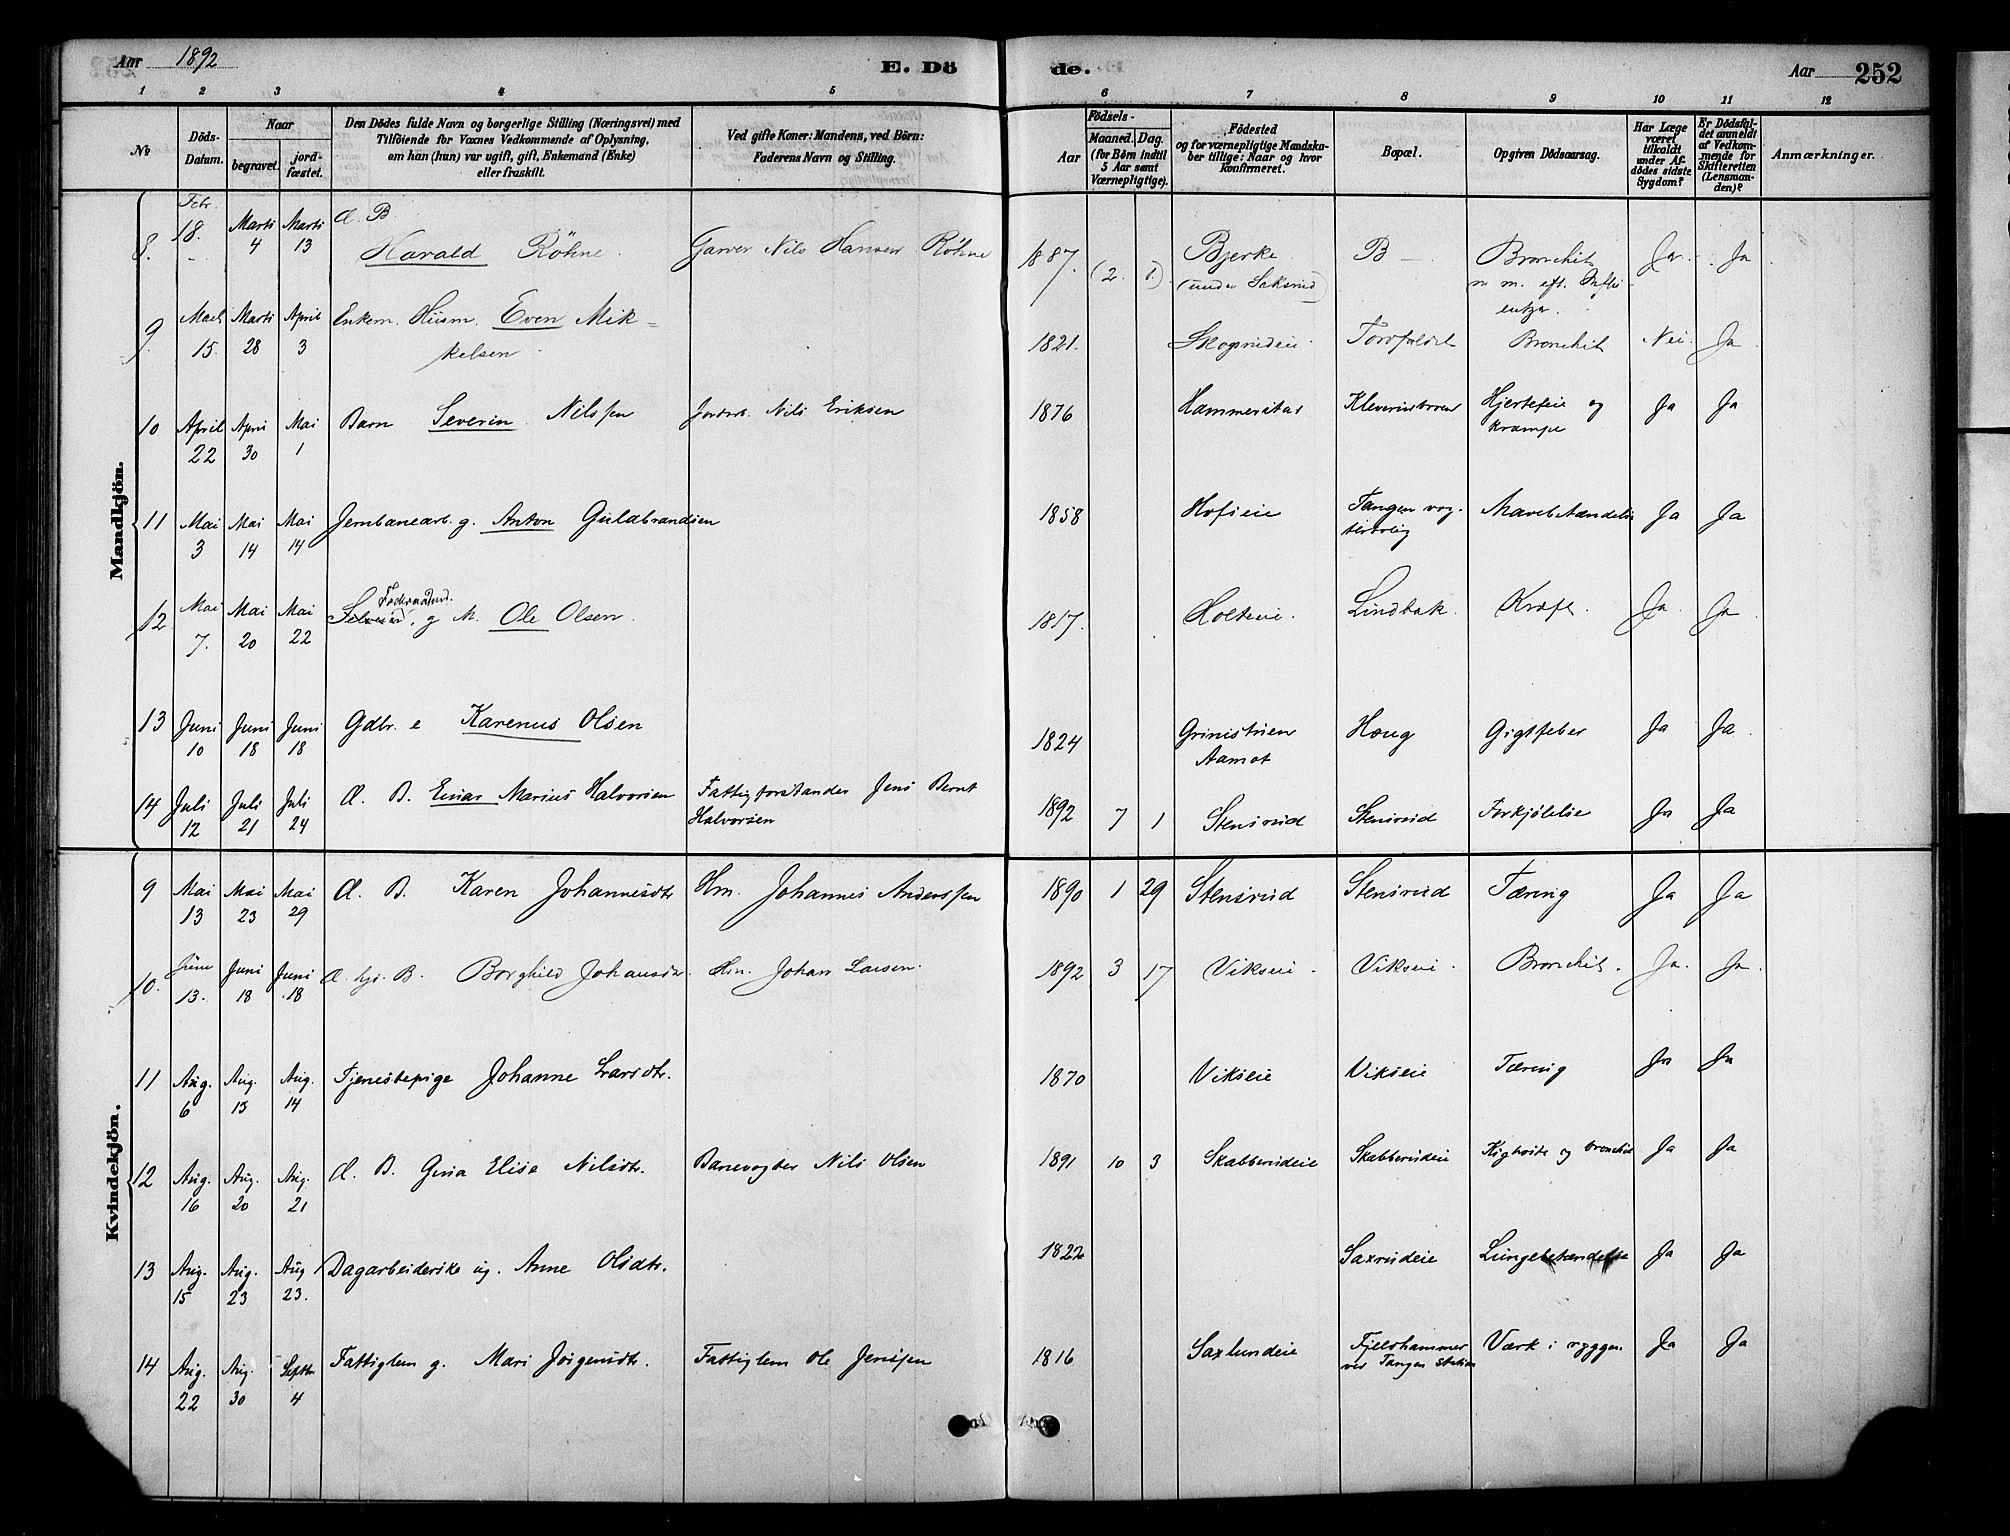 Aar 1892
E. Dö
de.
Aar 252
1 2 3 4 5 6 7 8 9 10 11 12
№
Döds-
Datum.
Naar
begravet.
jord-
fæstet.
Den Dödes fulde Navn og borgerlige Stilling (Næringsvei) med
Tilföiende for Voxnes Vedkommende af Oplysning,
om han (hun) var ugift, gift, Enkemand (Enke)
eller fraskilt.
Ved gifte Koner: Mandens, ved Börn:
Faderens Navn og Stilling.
Födsels-
Aar
Maaned. Dag.
(for Börn indtil
5 Aar samt
Værnepligtige).
Födested
og for værnepligtige Mandska-
ber tillige: Naar og hvor
konfirmeret.
Bopæl.
Opgiven Dödsaarsag.
Har Læge
været
tilkaldt
under Af-
dödes sidste
Sygdom?
Er Dödsfal-
det anmeldt
af Vedkom-
mende for
Skifteretten
(Lensman-
den)?
Anmærkninger.
Mandkjön.
8. Febr. 18. Marts 4 Marts 13 Æ. B. Harald Röhne. Garver Nils Hansen Röhne 1887. (2. 1.) Bjerke (under Saksrud) B — Bronchit Ja Ja
9. Marts 15. Marts 28 April 3 Enkem. Husm. Even Mik=
kelsen 1821. Skogsrudeie Bronchit Nei. Ja
10 April 22 April 30 Mai 1 Barn Severin Nilssen Jordbr. Nils Eriksen 1876 Hammerstad Hjertefeil og
krampe Ja Ja
11 Mai 3 Mai 14 Mai 14 Jernbanearb. g. Anton Guldbrandsen 1858 Hofseie Tangen vog-
terbolig Mavebetændelse Ja Ja
12 Mai 7. Mai 20 Mai 22 Föderaadsmd. g. M. Ole Olsen. 1817. Holteie. Lindbak. Kræft. Ja. Ja
13 Juni 10 Juni 18 Juni 18 Gdbr. e Karenus Olsen 1824 Aamot Houg Gigtfeber Ja Ja
14 Juli 12 Juli 21 Juli 24 Æ. B. Einar Marius Halvorsen Fattigforstander Jens Bernt
Halvorsen 1892 7 1 Stensrud Stensrud Forkjölelse Ja Ja
Kvindekjön.
9 Mai 13 Mai 23 Mai 29 Æ. B. Karen Johannesdtr Hm. Johannes Anderssen 1890 1 29 Stensrud Stensrud Tæring Ja Ja
10. Juni 13. Juni 18 Juni 18 Æ. hjd. B. Borghild Johansdtr. Hm. Johan Larsen. 1892 3 17 Vikseie. Vikseie. Bronchit. Ja. Ja.
11 Aug. 6 Aug. 13 Aug. 14 Tjenestepige Johanne Larsdtr. 1870 Vikseie Vikseie Tæring Ja Ja
12 Aug. 16 Aug. 20 Aug. 21 Æ. B. Gina Elise Nilsdtr. Banevogter Nils Olsen 1891 10 3 Skabberudeie Skabberudeie Kighoste og bronchit Ja Ja
13 Aug. 15 Aug. 23 Aug 23. Dagarbeiderske ug. Anne Olsdtr. 1822 Saxrudeie Lungebetændelse Ja Ja
14 Aug. 22 Aug. 30 Septbr 4 Fattiglem g. Mari Jörgensdtr. Fattiglem Ole Jenssen 1816 Saxlundeie Fjeldhammer
ved Tangen station Værk i ryggen Ja Ja